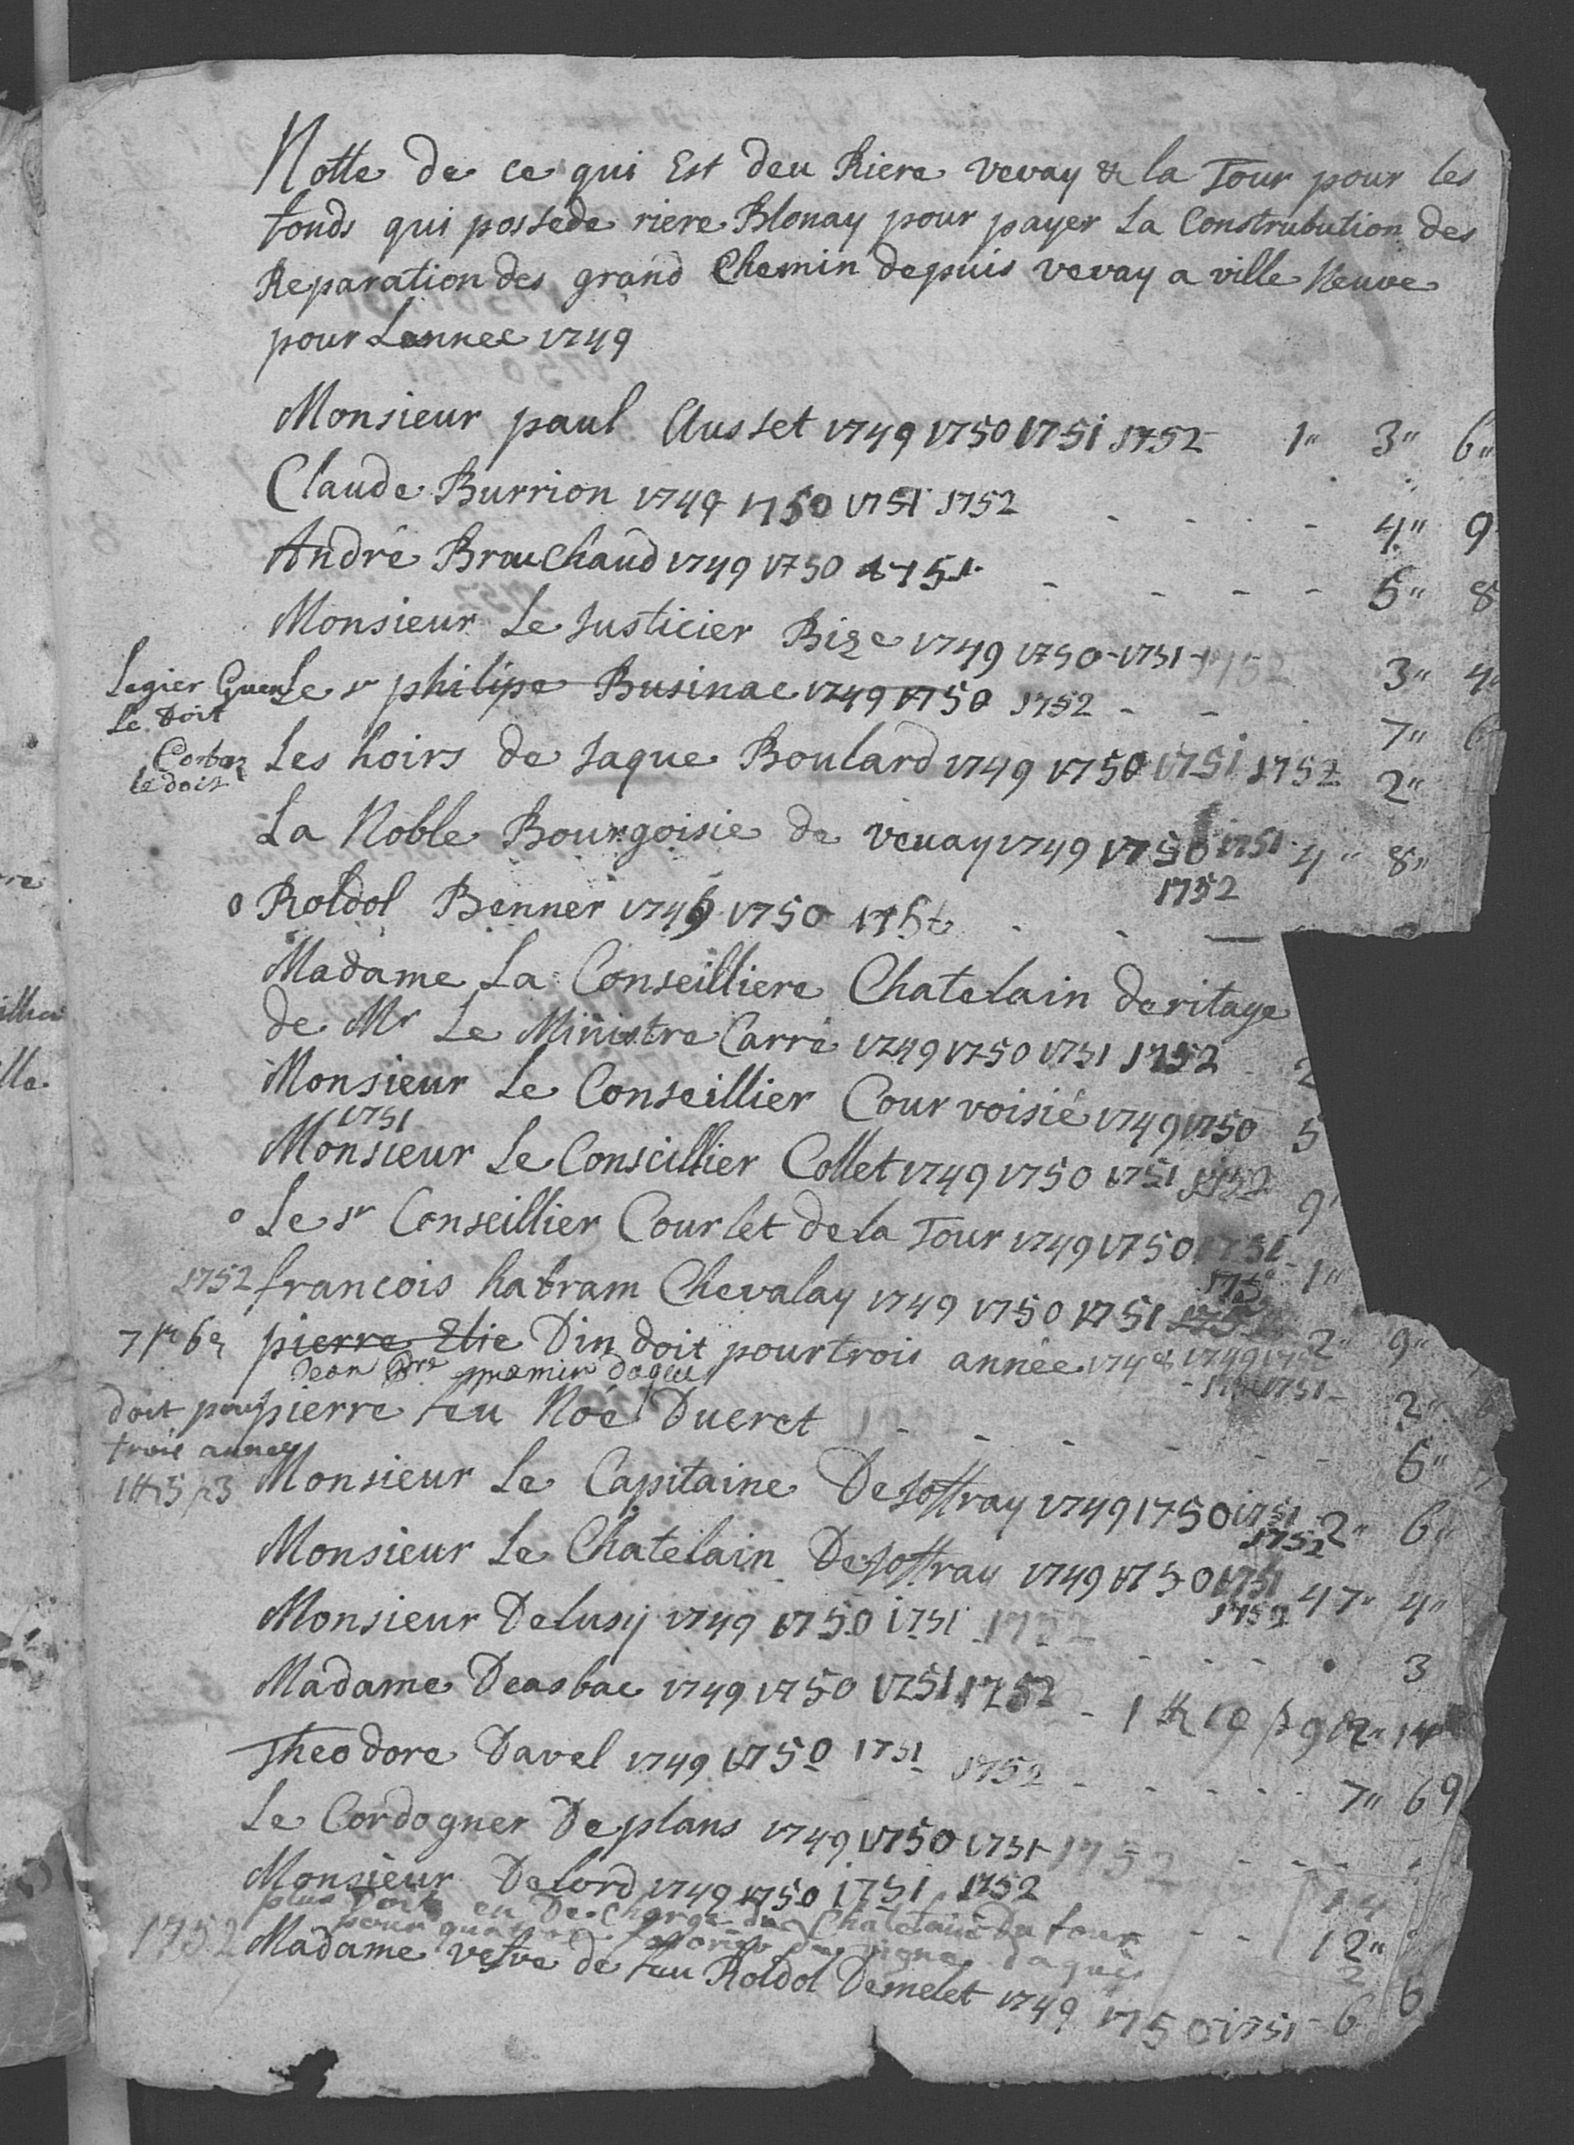 Notte de ce qui Est deu Riere vevay & la Tour pour les
fonds qui possede riere Blonay pour payer La Construbution des
Reparation des grand Chemin depuis vevay a ville Neuve
pour Lannee 1749
Monsieur paul Ausset 1749 1750 1751 1752 1" 3" 6"
Claude Burrion 1749 1750 1751 1752 - - - 4" 9
André Brouchaud 1749 1750 1751 - - - - 5" 8
Monsieur Le Justicier Bize 1749 1750-1751-1752 3" 4"
Legier Guen Le sr philipe Businae 1749 1750 1752 - - 7" 6
Le Doit
Les hoirs de Jaque Boulard 1749 1750 1751 1752 2"
Corbaz
le doit
La Noble Bourgoisie de vevay 1749 1750 1751 4" 8"
1752
o Roldol Benner 1749 1750 - -
Madame La Conseilliere Chatelain deritage
de Mr Le Ministre Carré 1749 1750 1751 1752 2
Monsieur Le Conseillier Courvoisié 1749 1750 5
1751
Monsieur Le Conseillier Collet 1749 1750 1751 1752 9"
o Le sr Conseillier Courlet de la Tour 1749 1750 1751 - 1"
1752 francois habram Chevalay 1749 1750 1751 1752 2" 9"
pierre Elie Din doit pour trois année 1749 1751 - 2"
Jean
doit pour pierre feu Noé Dueret - - - - - - 6"
trois annee
Monsieur Le Capitaine Dejoffray 1749 1750 1751 2" 6"
1752
Monsieur Le Chatelain Dejoffray 1749 1750 1751 47" 4"
1752
Monsieur Delusy 1749 1750 1751 1752 - - - 3
Madame Deasbac 1749 1750 1751 1752 - 14
Theodore Davel 1749 1750 1751 1752 - - - - 7" 69
Le Cordogner Deplans 1749 1750 1751 1752 - - - 14
Monsieur Delord 1749 1750 1751 1752 - - 12"
plus Doit en De Charge du Chatelain Du four
pour quatre de vigne
1752 Madame vefve de feu Roldol Demelet 1749 1750 1751 - 6 6